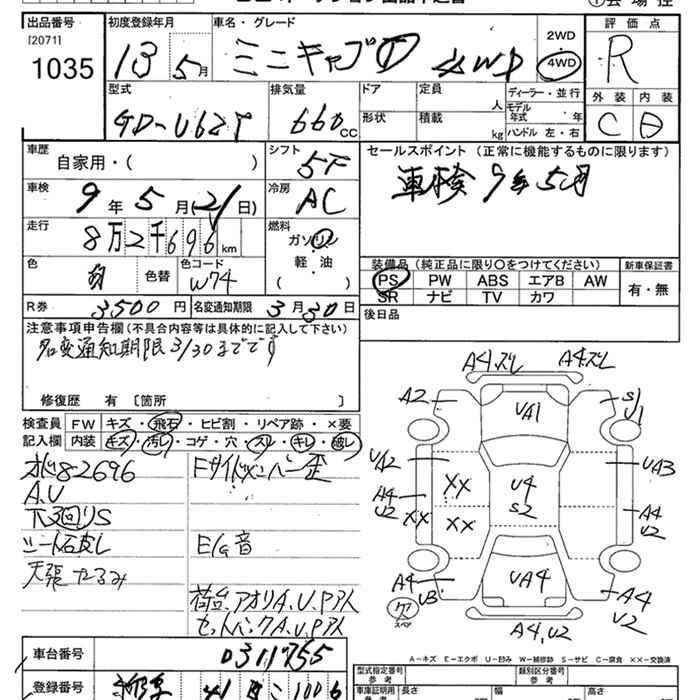 出品番号 初度登録年月 車名・グレード 評価点
[2071]
1035 13 5月 ミニキャブT 4WD 2WD 4WD R
型式 排気量 ドア 定員 人 ディーラー・並行 外装 内装
GD-U62T 660cc 形状 積載 kg モデル年式 年 ハンドル 左・右 C D
車歴 自家用・( ) シフト 5F セールスポイント (正常に機能するものに限ります)
車検 9年5月(21日) 冷房 AC 車検9年5月
走行 8万2千696km 燃料 ガソリン 軽油 ( )
色 白 色替 色コード W74 装備品 (純正品に限り〇をつけてください) 新車保証書
PS PW ABS エアB AW 有・無
SR ナビ TV カワ
R券 3,500円 名変通知期限 3月30日 後日品
注意事項申告欄(不具合内容等は具体的に記入して下さい)
名変通知期限3/30までです
修復歴 有 [箇所 ]
検査員 FW キズ・飛石・ヒビ割・リペア跡・×要
記入欄 内装 キズ・汚レ・コゲ・穴・スレ・キレ・破レ
オド8-2696 Fサイドメンバー歪
A.U
下廻りS
シート石皮レ E/G音
天張たるみ
荷台、アオリA.U.P.アイ
セットバックA.U.P.アイ
A4.スレ A4.スレ
A2 UA1 S1 U1
UA2 XX U4 S2 UA3
A4 U2 XX XX A4 U2
A4 U3 UA4 A4 U2
スペア A4,U2
A-キズ E-エクボ U-凹み W-補修跡 S-サビ C-腐食 XX-交換済
車台番号 0311755
登録番号 41 1006
型式指定番号 参考 類別区分番号 参考
車庫証明用 長さ 幅 高